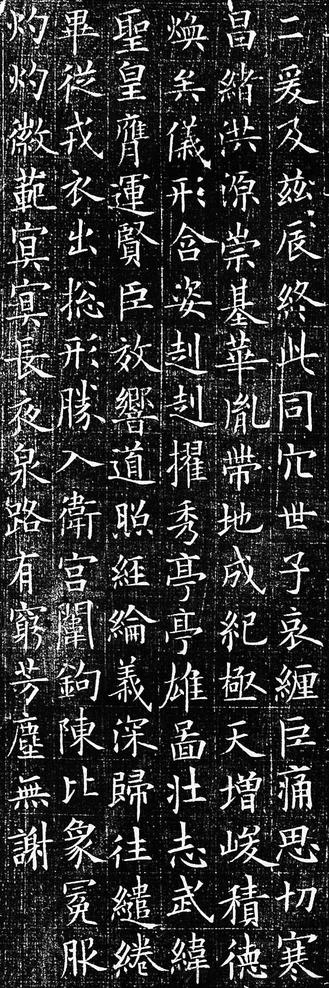 二爰及玆辰終此同穴世子哀纏巨痛思切寒
昌緒洪源崇基華胤帶地成紀極天增峻積德
煥矣儀形含姿赳赳擢秀亭亭雄啚壯志武緯
聖皇膺運賢臣效響道照經綸義深歸往繾綣
畢從戎衣出揔形勝入衛宮闈鉤陳比象冕服
灼灼徽範冥冥長夜泉路有窮芳塵無謝